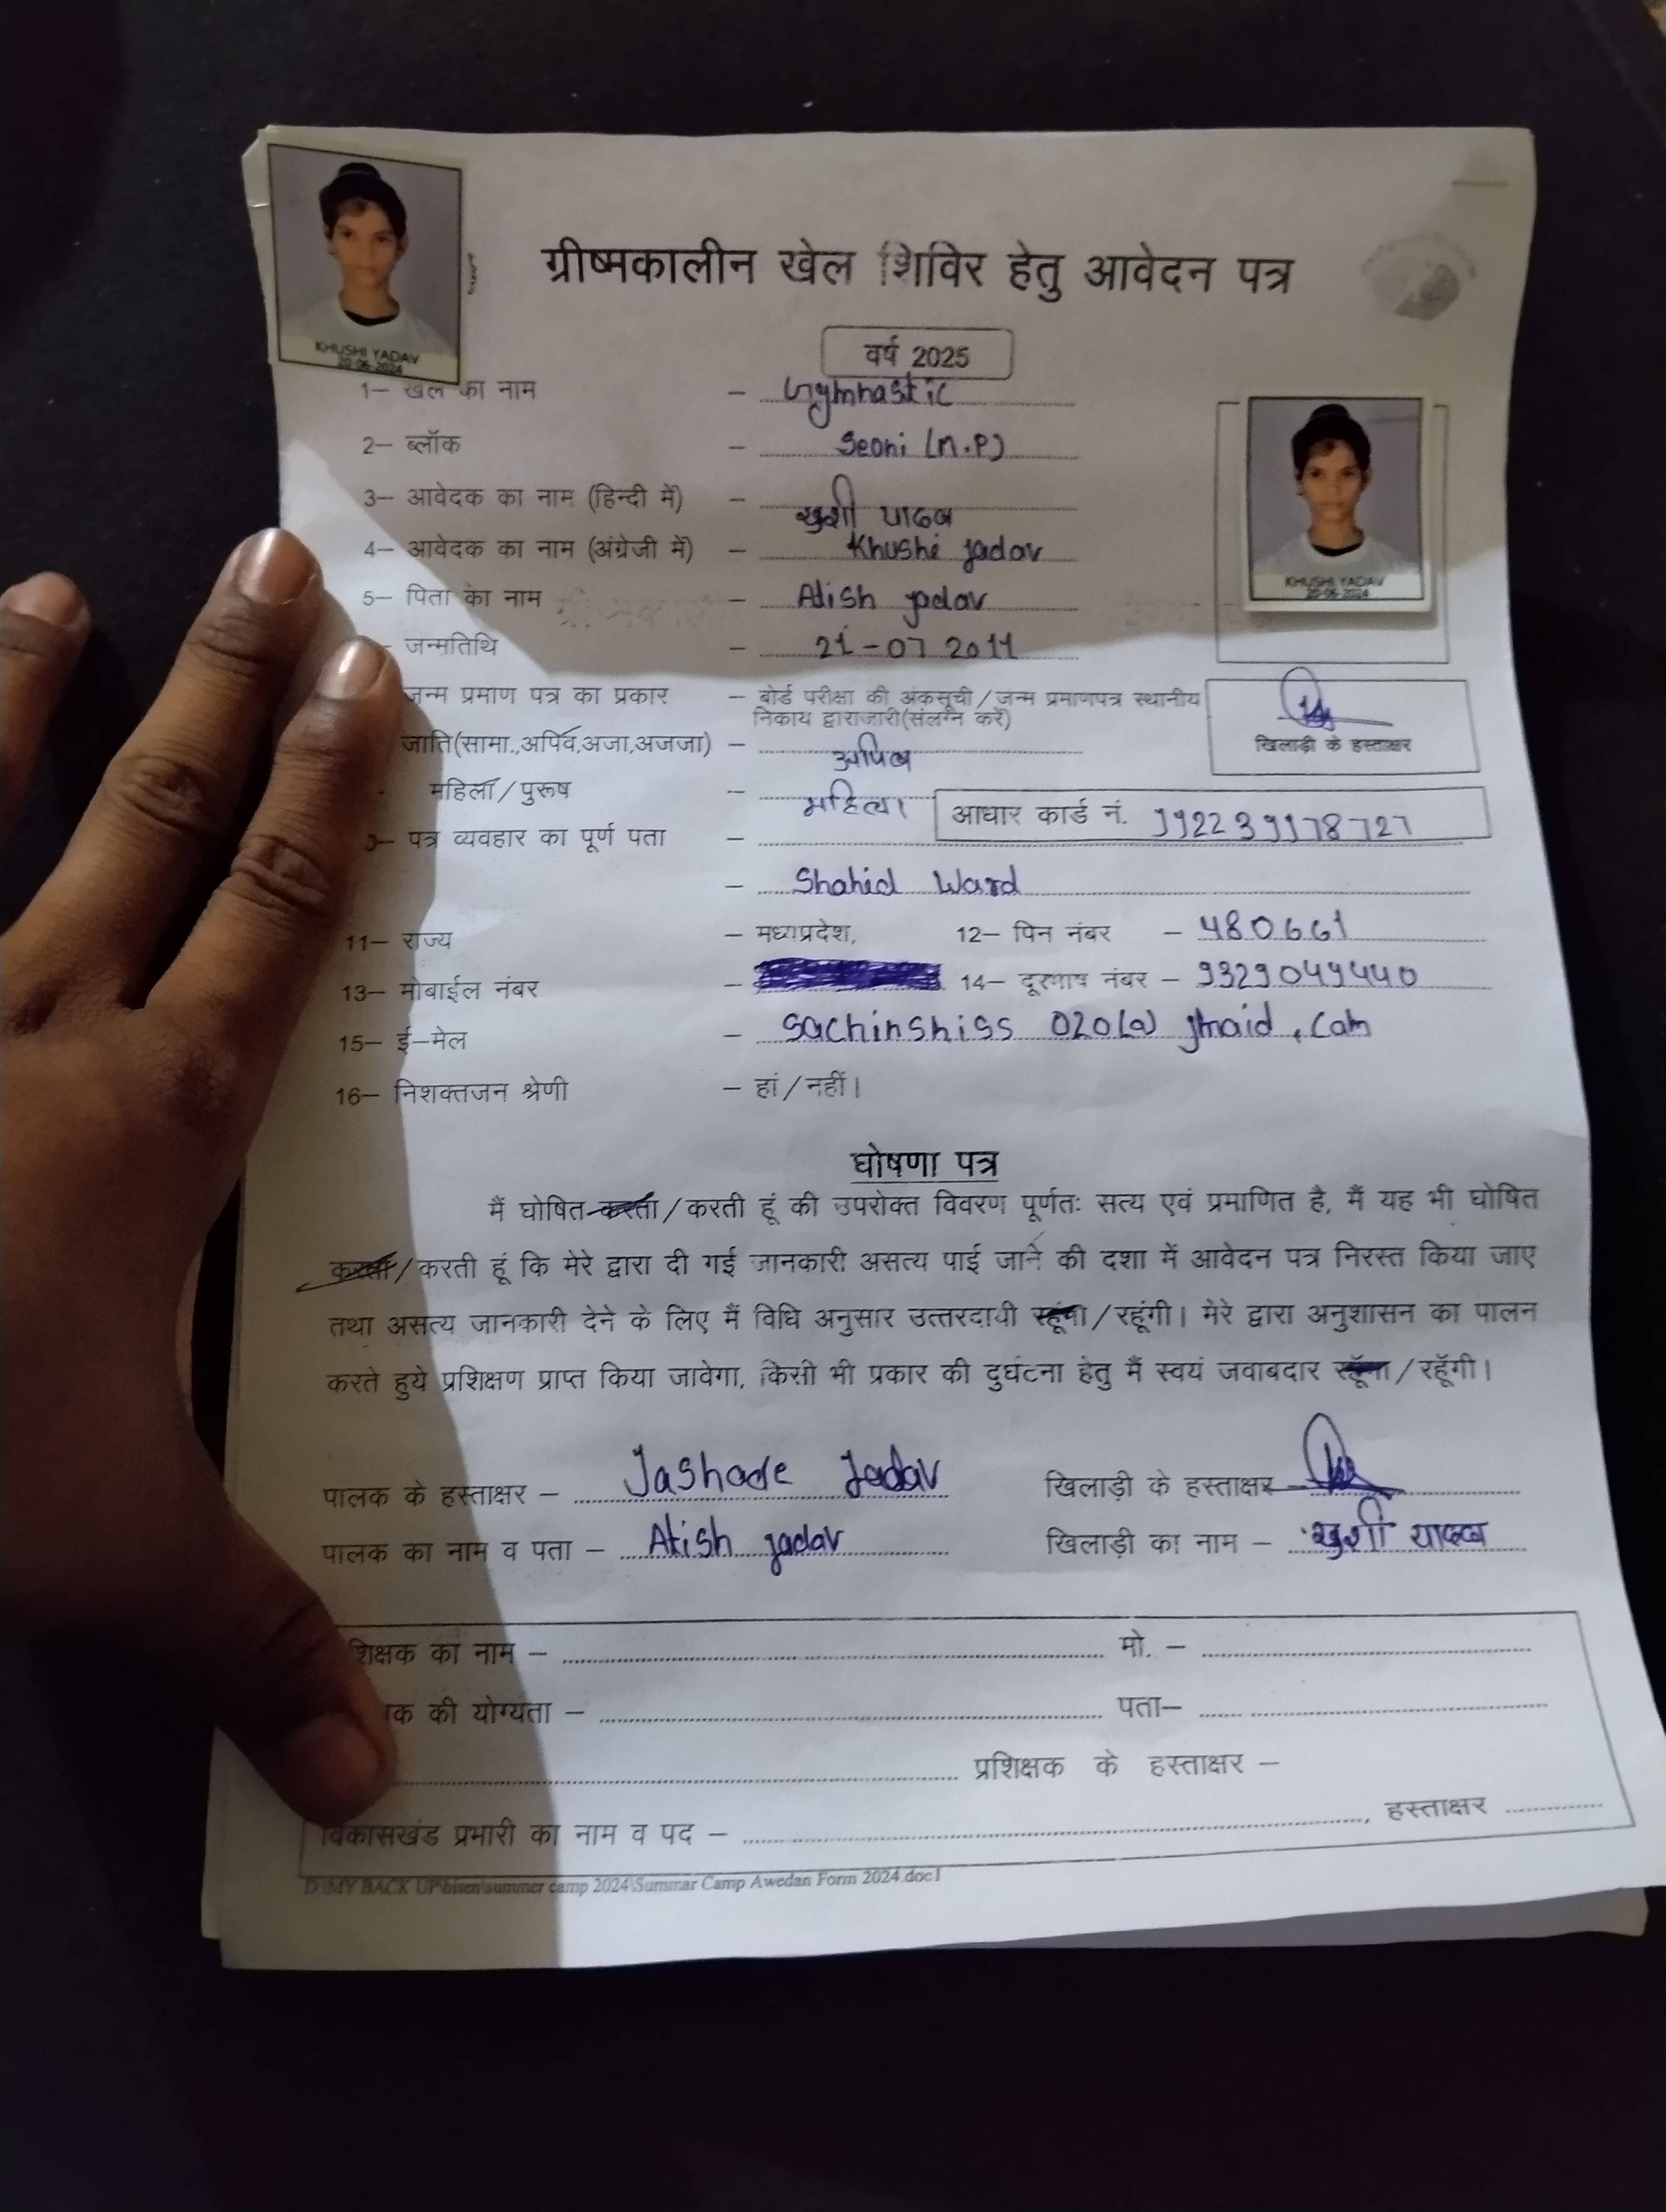 KHUSHI YADAV
20-06-2024
ग्रीष्मकालीन खेल शिविर हेतु आवेदन पत्र
वर्ष 2025
1— खेल का नाम – Gymnastic
2— ब्लॉक – Seoni (M.P)
3— आवेदक का नाम (हिन्दी में) – खुशी यादव
4— आवेदक का नाम (अंग्रेजी में) – Khushi yadav
KHUSHI YADAV
20-06-2024
5— पिता का नाम – Atish yadav
जन्मतिथि – 21-07 2011
जन्म प्रमाण पत्र का प्रकार – बोर्ड परीक्षा की अंकसूची/जन्म प्रमाणपत्र स्थानीय
निकाय द्वाराजारी(संलग्न करें)
खिलाड़ी के हस्ताक्षर
जाति(सामा.,अपिव,अजा,अजजा) – अपिव
महिला/पुरूष – महिला
आधार कार्ड नं.
पत्र व्यवहार का पूर्ण पता –
– Shahid Ward
11— राज्य – मध्यप्रदेश, 12— पिन नंबर – 480661
13— मोबाईल नंबर – 14— दूरभाष नंबर – 9329049440
15— ई–मेल – sachinshiss 020@
16— निशक्तजन श्रेणी – हां/नहीं।
घोषणा पत्र
मैं घोषित करता/करती हूं की उपरोक्त विवरण पूर्णतः सत्य एवं प्रमाणित है, मैं यह भी घोषित
करता/करती हूं कि मेरे द्वारा दी गई जानकारी असत्य पाई जाने की दशा में आवेदन पत्र निरस्त किया जाए
तथा असत्य जानकारी देने के लिए मैं विधि अनुसार उत्तरदायी रहूंगा/रहूंगी। मेरे द्वारा अनुशासन का पालन
करते हुये प्रशिक्षण प्राप्त किया जावेगा, किसी भी प्रकार की दुर्घटना हेतु मैं स्वयं जवाबदार रहूँगा/रहूँगी।
पालक के हस्ताक्षर – Jashade Yadav खिलाड़ी के हस्ताक्षर
पालक का नाम व पता – Atish yadav खिलाड़ी का नाम – खुशी यादव
शिक्षक का नाम – मो. –
क की योग्यता – पता–
प्रशिक्षक के हस्ताक्षर –
विकासखंड प्रभारी का नाम व पद – , हस्ताक्षर
D:\MY BACK UP\bisen\summer camp 2024\Summar Camp Awedan Form 2024.doc1